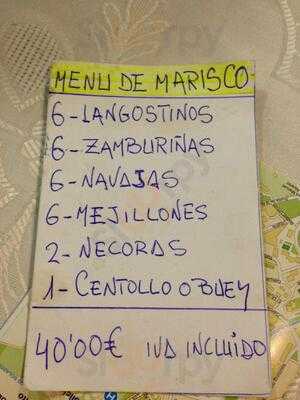 MENU DE MARISCO
6-LANGOSTINOS
6-ZAMBURIÑAS
6-NAVAJAS
6-MEJILLONES
2-NECORAS
1-CENTOLLO O BUEY
40'00€ IVA INCLUIDO